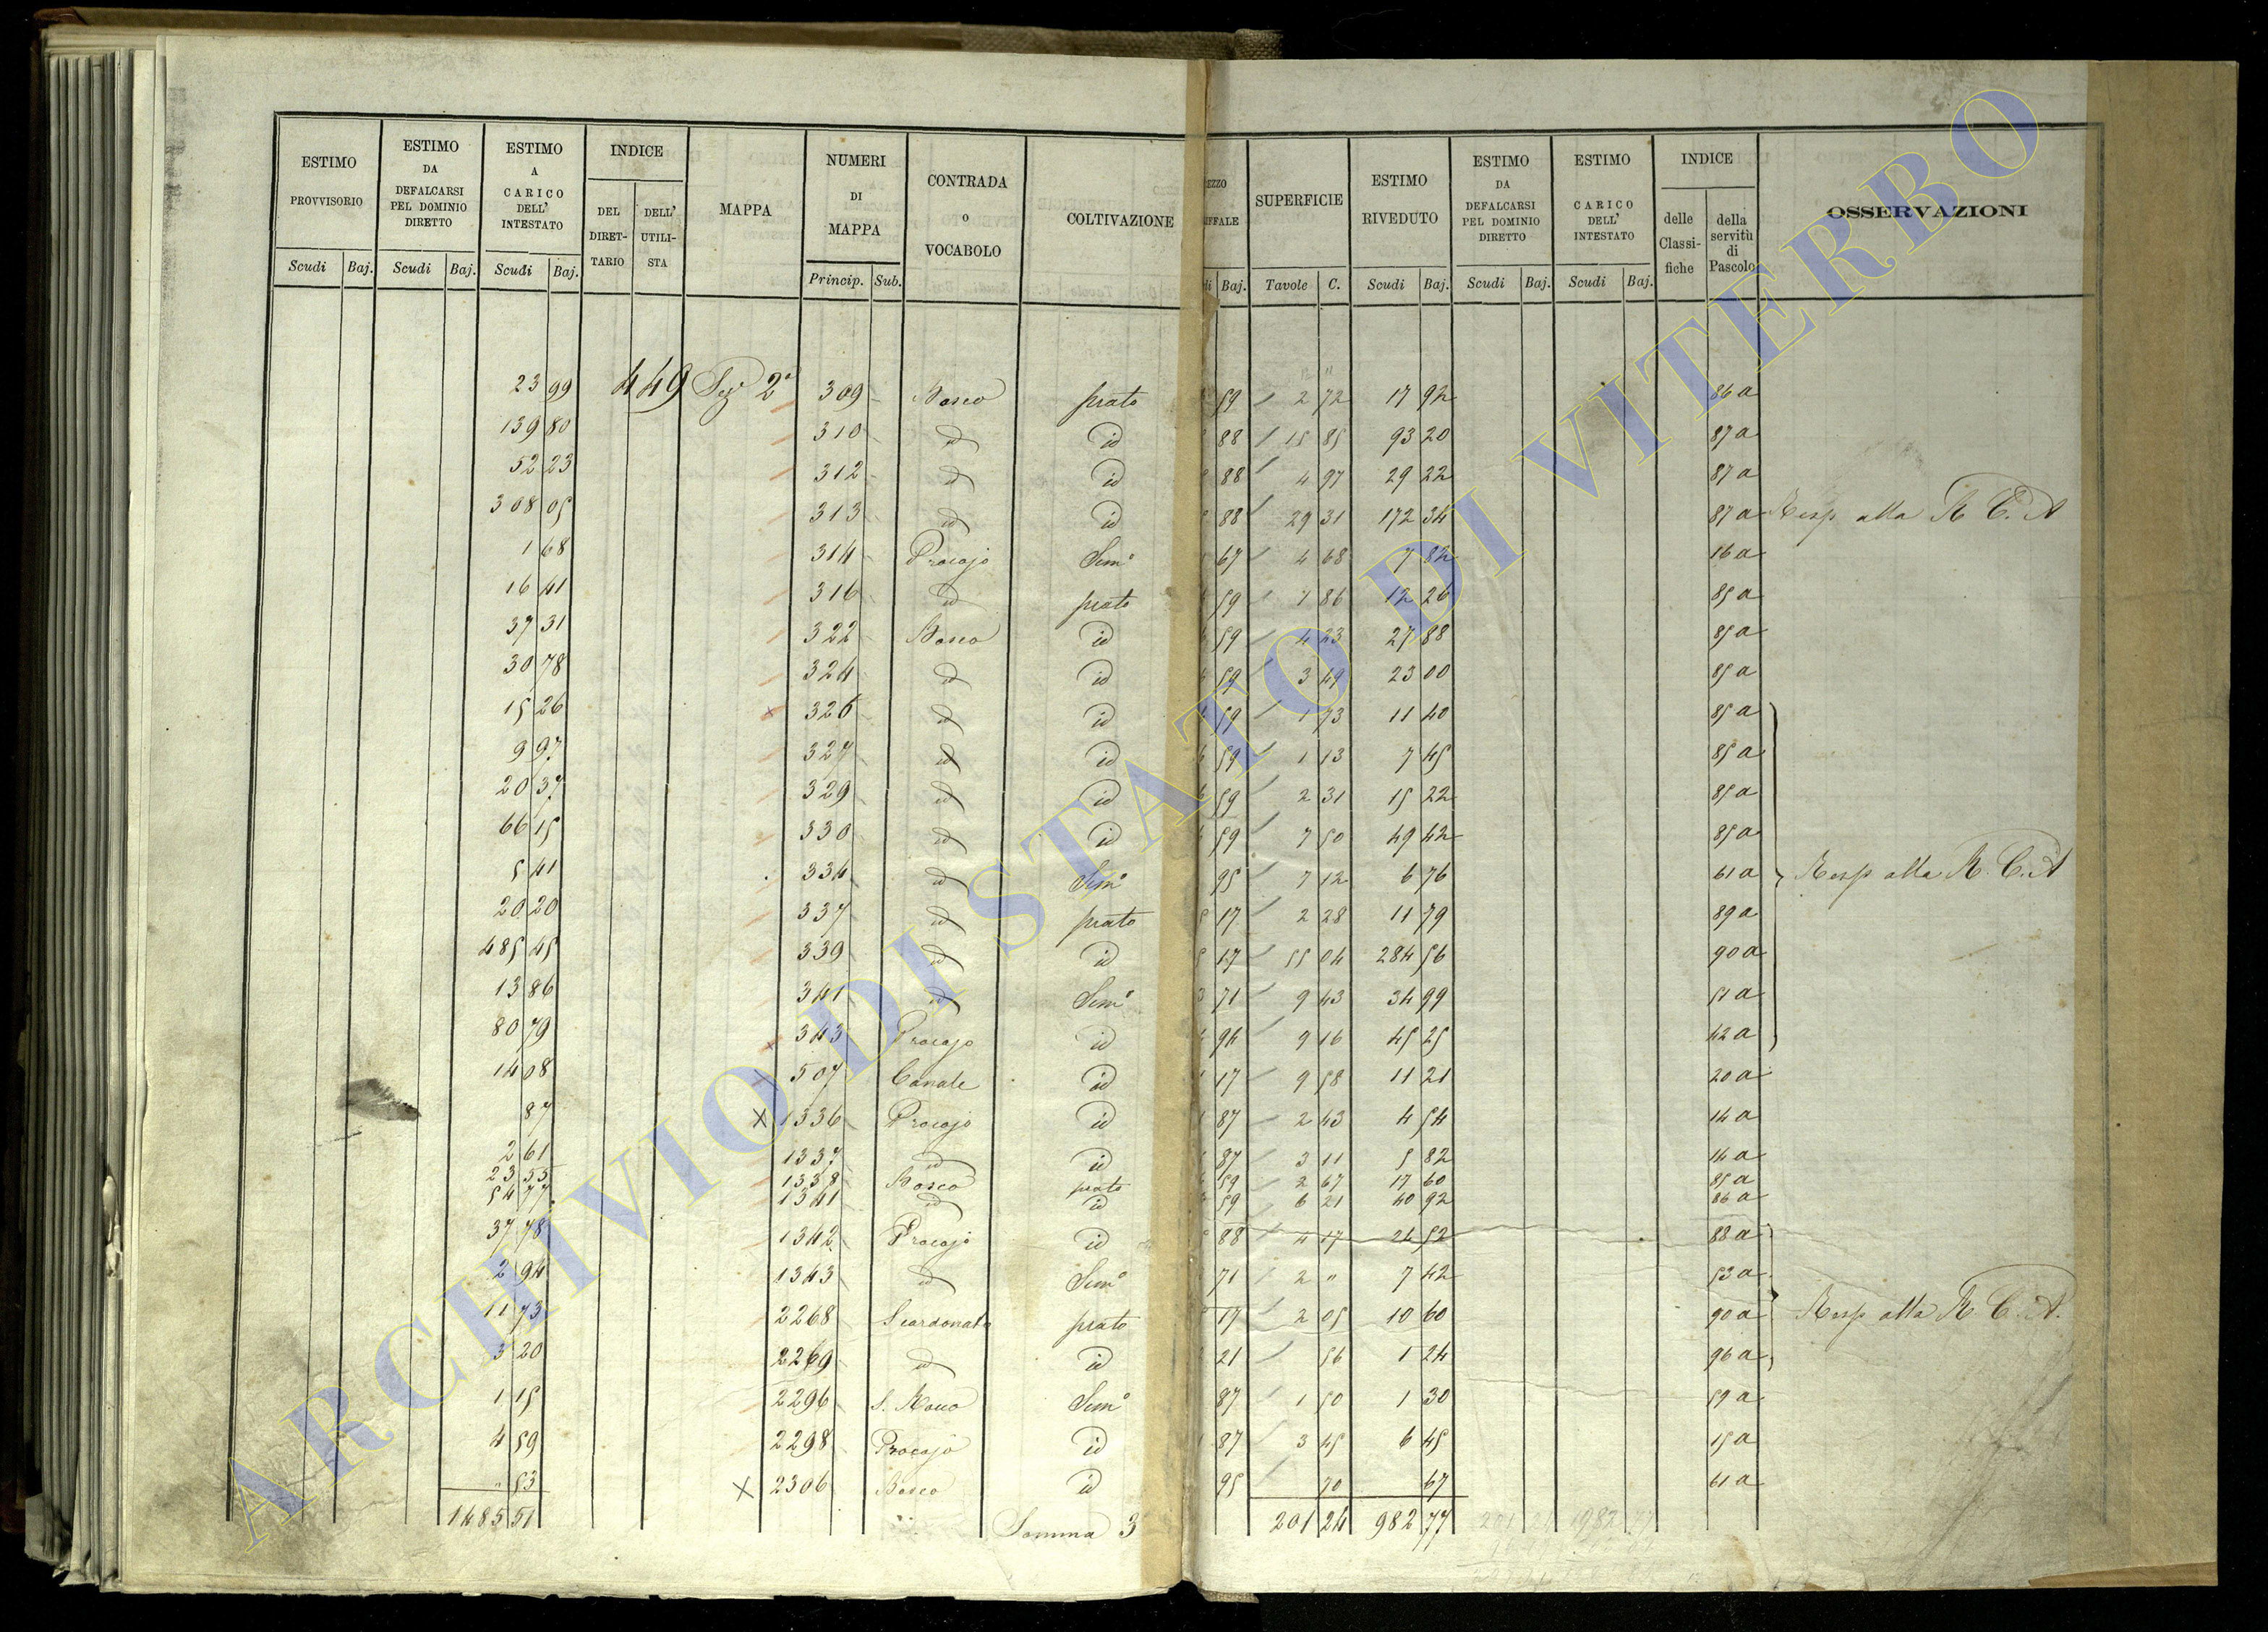 ESTIMO PROVVISORIO
ESTIMO DA DEFALCARSI PEL DOMINIO DIRETTO
ESTIMO A CARICO DELL' INTESTATO
INDICE
DEL DIRET-TARIO
DELL' UTILI-STA
MAPPA
NUMERI DI MAPPA
CONTRADA o VOCABOLO
COLTIVAZIONE
EZZO IFFALE
SUPERFICIE
ESTIMO RIVEDUTO
ESTIMO DA DEFALCARSI PEL DOMINIO DIRETTO
ESTIMO CARICO DELL' INTESTATO
INDICE
delle Classi-fiche
della servitù di Pascolo
OSSERVAZIONI
Scudi Baj. Scudi Baj. Scudi Baj. Princip. Sub. di Baj. Tavole C. Scudi Baj. Scudi Baj. Scudi Baj.
23 99 449 Sez 2a 309 Bosco prato 59 2 72 17 92 86 a
139 80 310 id id 88 15 85 93 20 87 a
52 23 312 id id 88 4 97 29 22 87 a
308 05 313 id id 88 29 31 172 34 87 a Resp alla R C. A
1 68 314 Procojo Sem° 67 4 68 7 82 16 a
16 41 316 id prato 59 1 86 12 26 85 a
37 31 322 Bosco id 59 4 23 27 88 85 a
30 78 324 id id 59 3 49 23 00 85 a
15 26 326 id id 59 1 73 11 40 85 a
9 97 327 id id 59 1 13 7 45 85 a
20 37 329 id id 59 2 31 15 22 85 a
66 15 330 id id 59 7 50 49 42 85 a
5 41 334 id Sem° 95 7 12 6 76 61 a Resp alla R. C. A
20 20 337 id prato 17 2 28 11 79 89 a
485 45 339 id id 17 55 04 284 56 90 a
13 86 341 id Sem° 71 9 43 34 99 51 a
80 79 343 Procojo id 94 9 16 45 25 42 a
14 08 507 Canale id 17 9 58 11 21 20 a
87 X 1336 Procojo id 87 2 43 4 54 14 a
2 61 1337 id id 87 3 11 5 82 14 a
23 55 1338 Bosco prato 59 2 67 17 60 85 a
54 77 1341 id id 59 6 21 40 92 86 a
37 78 1342 Procojo id 88 4 17 24 52 88 a
2 94 1343 id Sem° 71 2 " 7 42 53 a
11 73 2268 Scardonata prato 17 2 05 10 60 90 a Resp alla R. C. A.
3 20 2269 id id 21 56 1 24 96 a
1 15 2296 S. Rocco Sem° 87 1 50 1 30 59 a
4 59 2298 Procojo id 87 3 45 6 45 15 a
" 53 X 2306 Bosco id 95 70 67 61 a
1485 51 Somma 3 201 24 982 77
ARCHIVIO DI STATO DI VITERBO